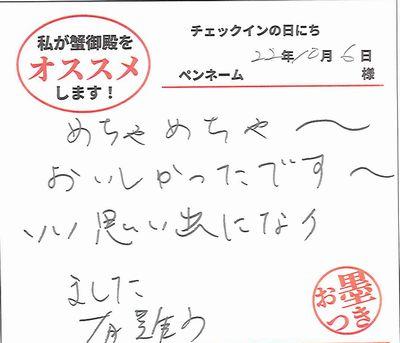 私が蟹御殿を
オススメ
します！
チェックインの日にち
22年10月6日
ペンネーム 様
めちゃめちゃ〜
おいしかったです〜
いい思い出になり
ました
有難う
お墨つき